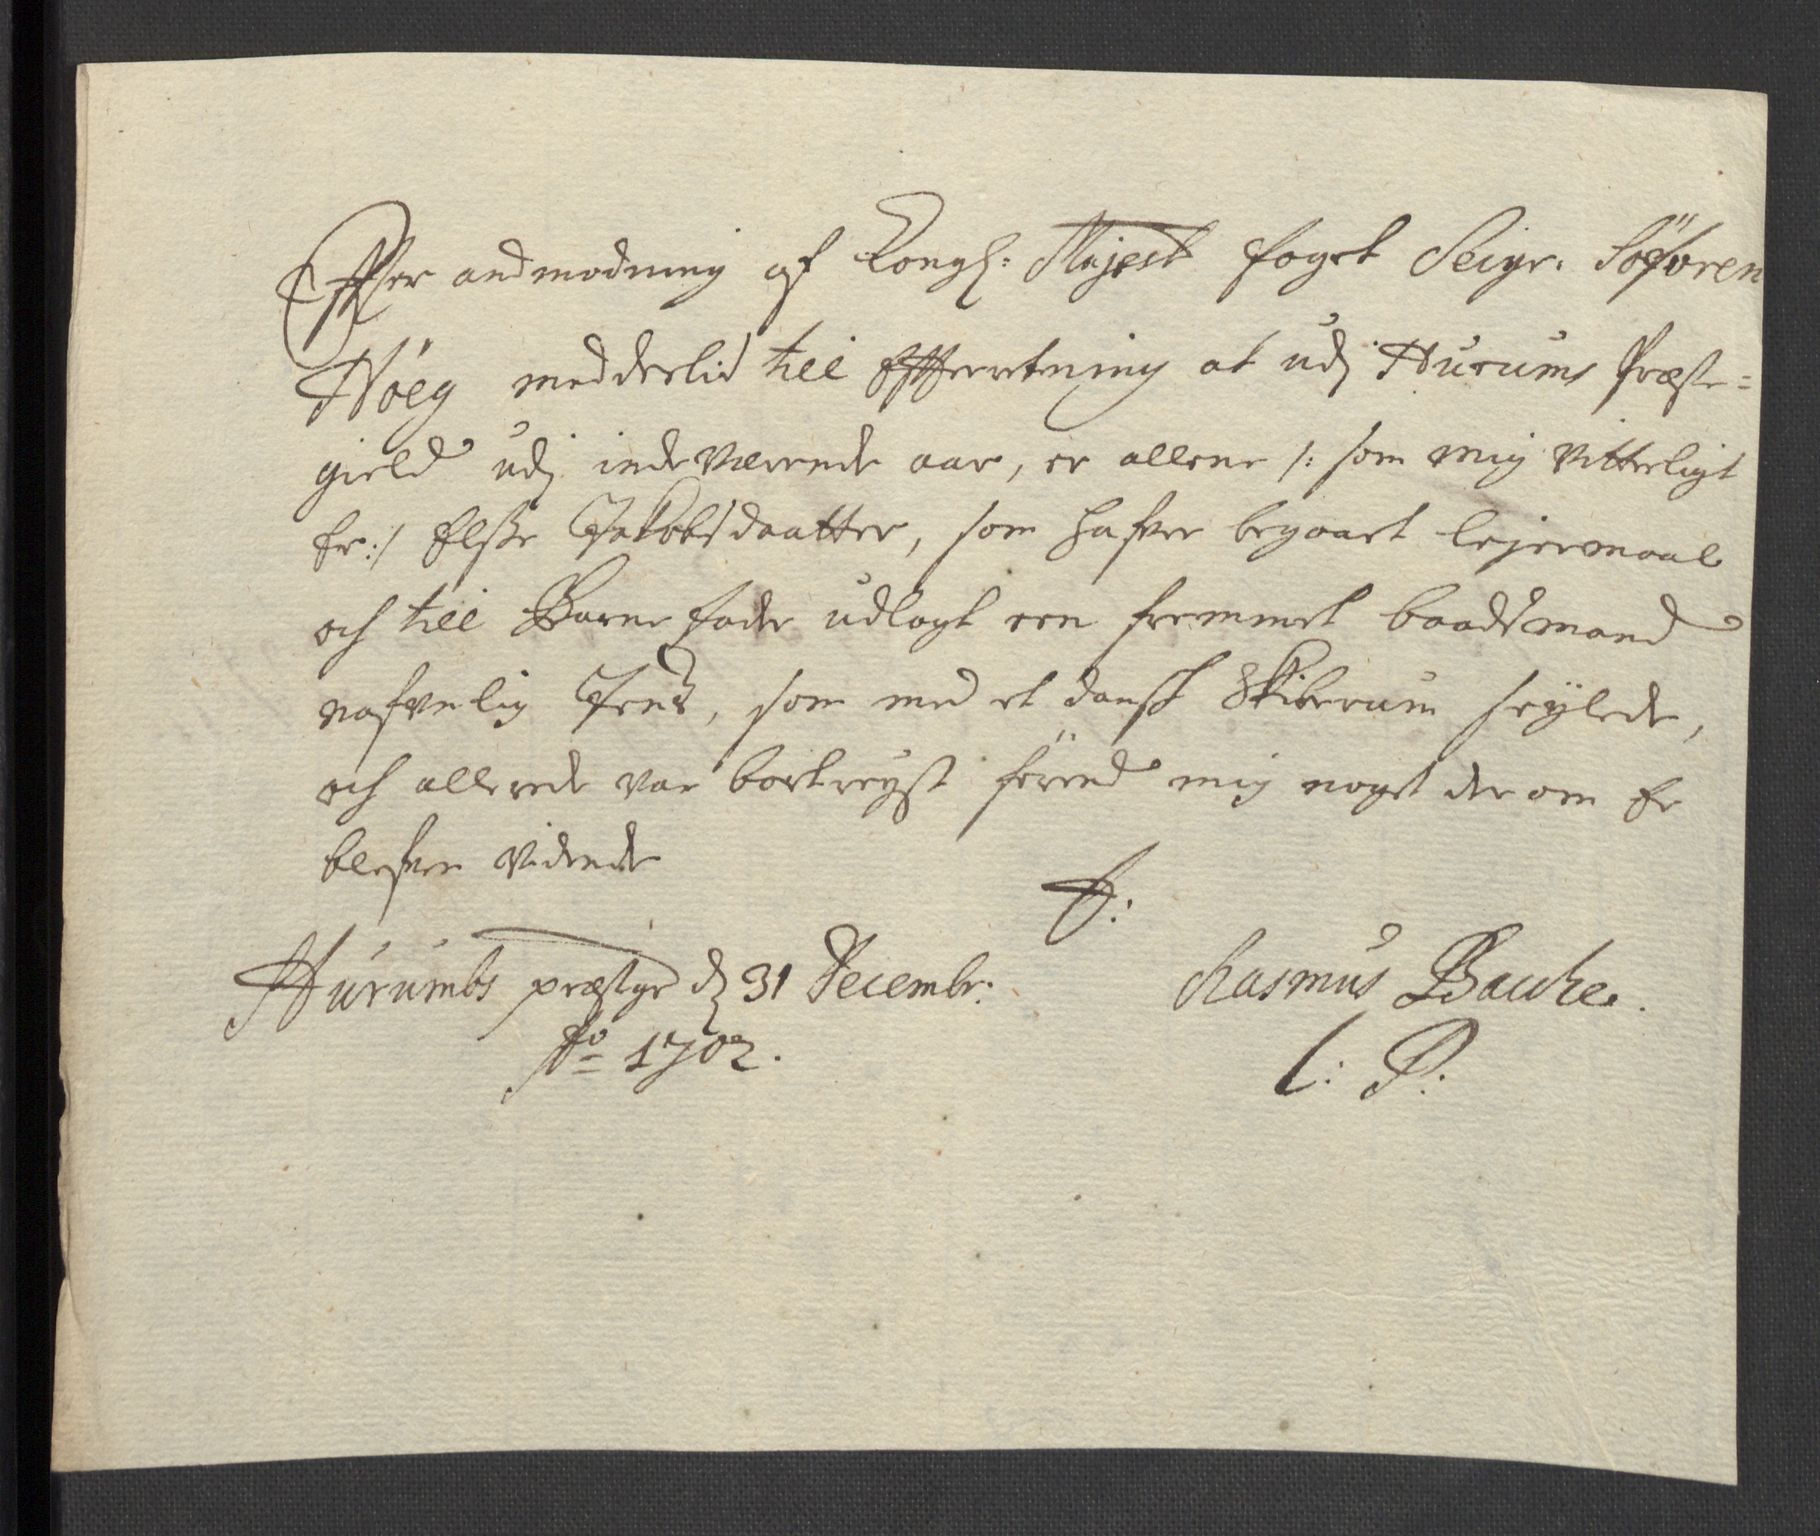 Effter andmodning af Kongl: Majest foget Seigr. Söfren
Höeg meddeelis till Effterretning at udj Hurums Præste=
gield udj indeværende aar, er allene /: som mig vitterligt
er :/ Elsse Jakobsdaatter, som hafver begaaet lejermaal
och till Barnefader udlagt een fremmet baadsmand
nafnlig Jens, som med et dansk Skiberum seylede,
och allerede var bortreyst förend mig noget der om er
blefven vidende
Hurumbs præstgr d 31 Decembr:
Ao 1702.
Rasmus Bauke.